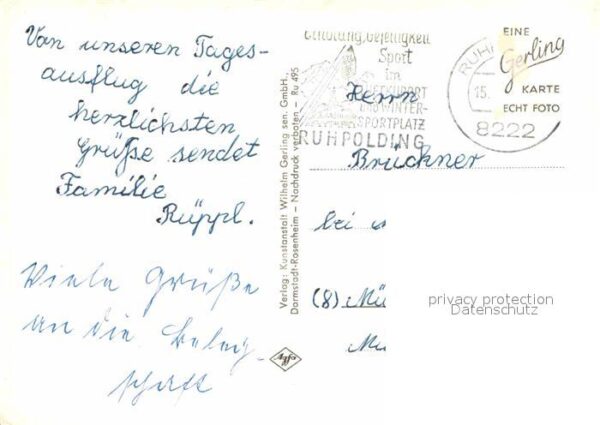 Von unseren Tages-
ausflug die
herzlichsten
Grüße sendet
Familie
Rüppl.
Viele Grüße
an die Beleg-
schaft
Verlag: Kunstanstalt Wilhelm Gerling sen. GmbH.
Darmstadt-Rosenheim – Nachdruck verboten – Ru 495
Agfa
Erholung, Geselligkeit
Sport
im
KURORT
WINTER-
SPORTPLATZ
RUHPOLDING
RUH
15.
8222
EINE
Gerling
KARTE
ECHT FOTO
Herrn
Brückner
bei
(8) Mü
Mu
privacy protection
Datenschutz